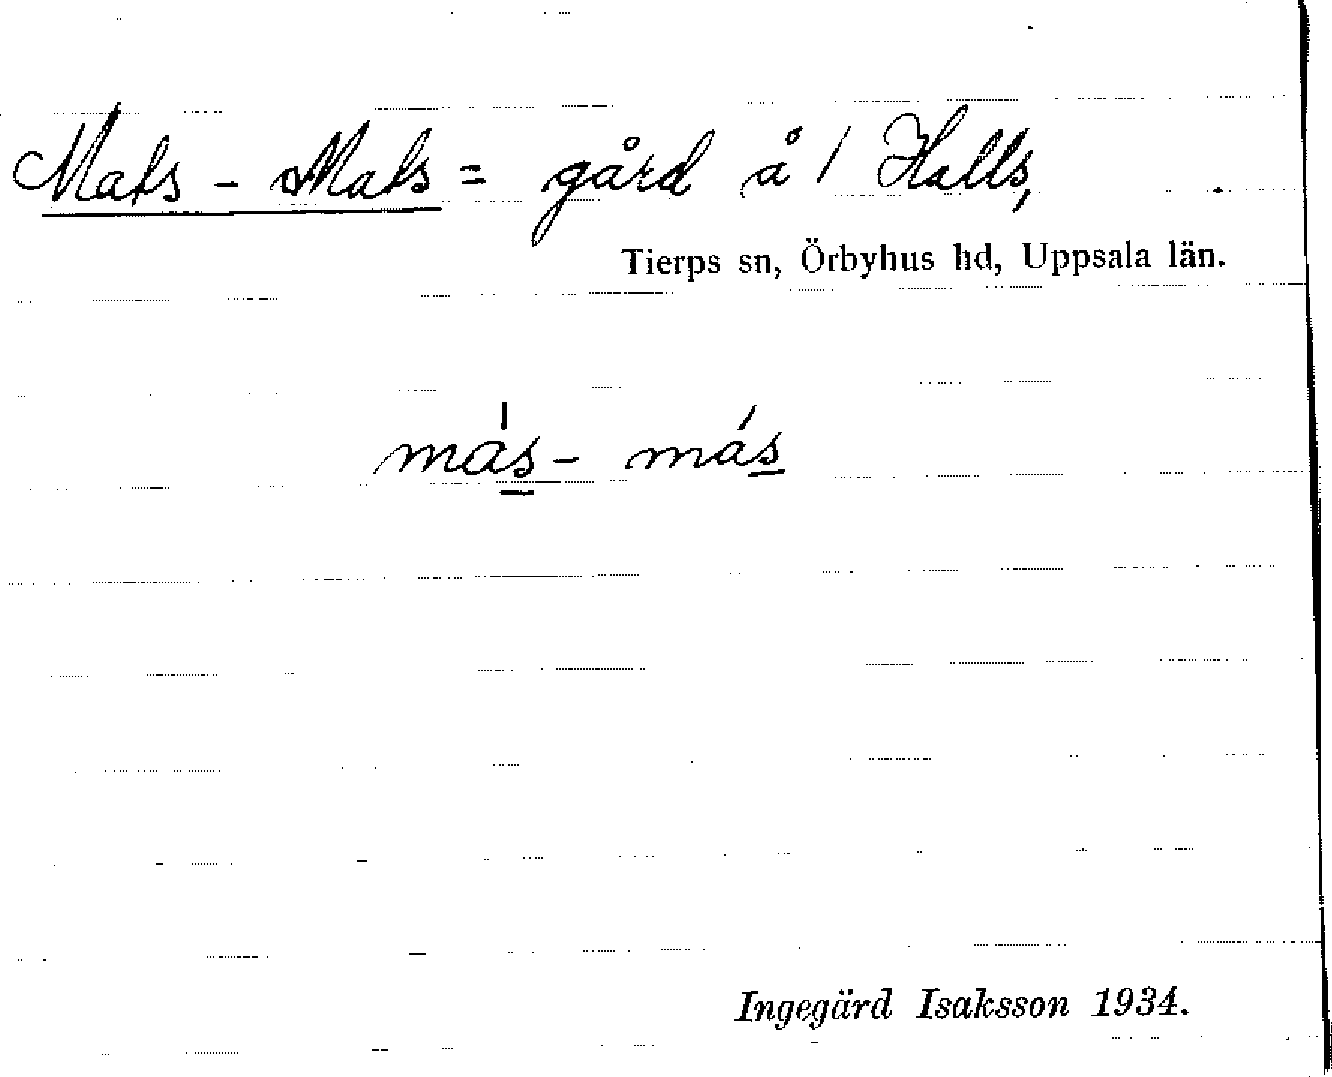 Mats - Mats = gård å 1 Halls,
Tierps sn, Örbyhus hd, Uppsala län.
más- más
Ingegärd Isaksson 1934.